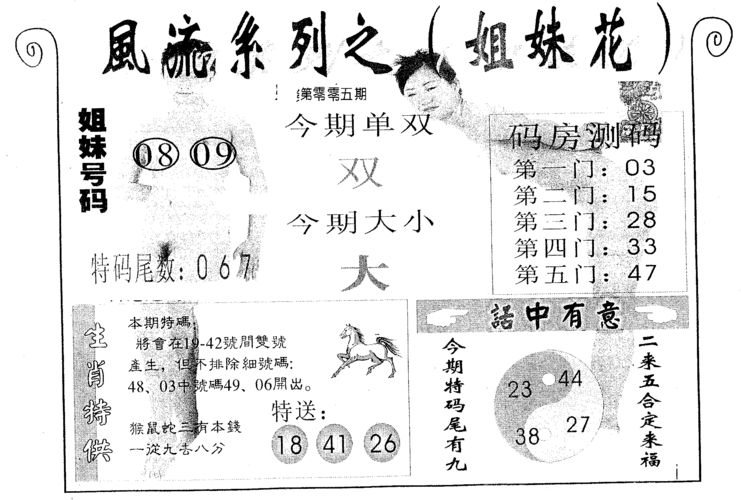 風流系列之（姐妹花）
第零零五期
姐妹号码
08 09
特码尾数：067
今期单双
双
今期大小
大
码房测码
第一门：03
第二门：15
第三门：28
第四门：33
第五门：47
生肖特供
本期特碼，
將會在19-42號間雙號
產生，但不排除細號碼：
48、03中號碼49、06開出。
猴鼠蛇三有本錢
一從九去八分
特送：
18 41 26
話中有意
今期特码尾有九
23 44
38 27
二来五合定来福